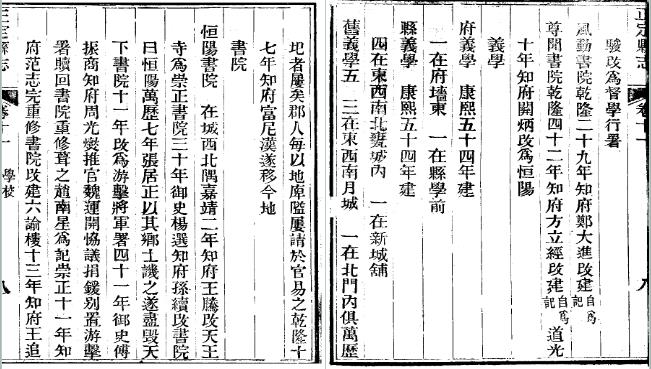 正定縣志 卷十一 八
駿改爲督學行署
風動書院乾隆二十九年知府鄭大進改建自爲記
尊聞書院乾隆四十二年知府方立經改建自爲記道光
十年知府開炳改爲恒陽
義學
府義學 康熙五十四年建
一在府墻東 一在縣學前
縣義學 康熙五十四年建
四在東西南北甕城內 一在新城鋪
舊義學五 三在東西南月城 一在北門內俱萬歷
圯者屢矣郡人每以地庳隘屢請於官易之乾隆十
七年知府富尼漢遂移今地
書院
恒陽書院 在城西北隅嘉靖二年知府王騰改天王
寺爲崇正書院三十年御史楊選知府孫續改書院
曰恒陽萬歷七年張居正以其鄉士譏之遂盡毀天
下書院十一年改爲游擊將軍署四十一年御史傅
振商知府周光燮推官魏運開協議捐鍰別置游擊
署贖回書院重修葺之趙南星爲記崇正十一年知
府范志完重修書院改建六諭樓十三年知府王追
正定縣志 卷十一 學校 八